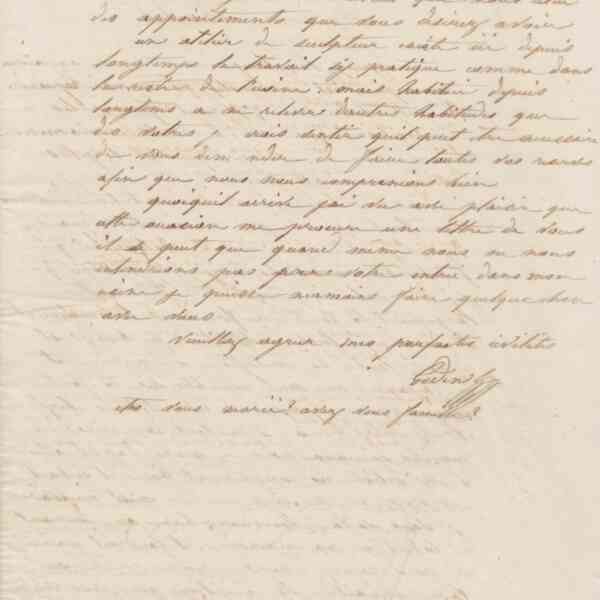 des appointements que vous désirez avoir
un atelier de sculpteur existe ici depuis
longtemps le travail s'y pratique comme dans
le reste de l'usine. mais habitué depuis
longtems à d'autres habitudes que
des votres, vous sentez qu'il peut être necessaire
de vous demander de faire toutes vos
afin que nous nous comprenions bien
quoiqu'il arrive j'ai vu avec plaisir que
cette occasion me procure une lettre de vous
il se peut que quand même nous ne nous
entendrions pas pour votre entrée dans mon
usine je puisse neanmoins faire quelque chose
avec vous
Veuillez agreer mes parfaites civilités
Godin
êtes vous marié? avez vous famille?